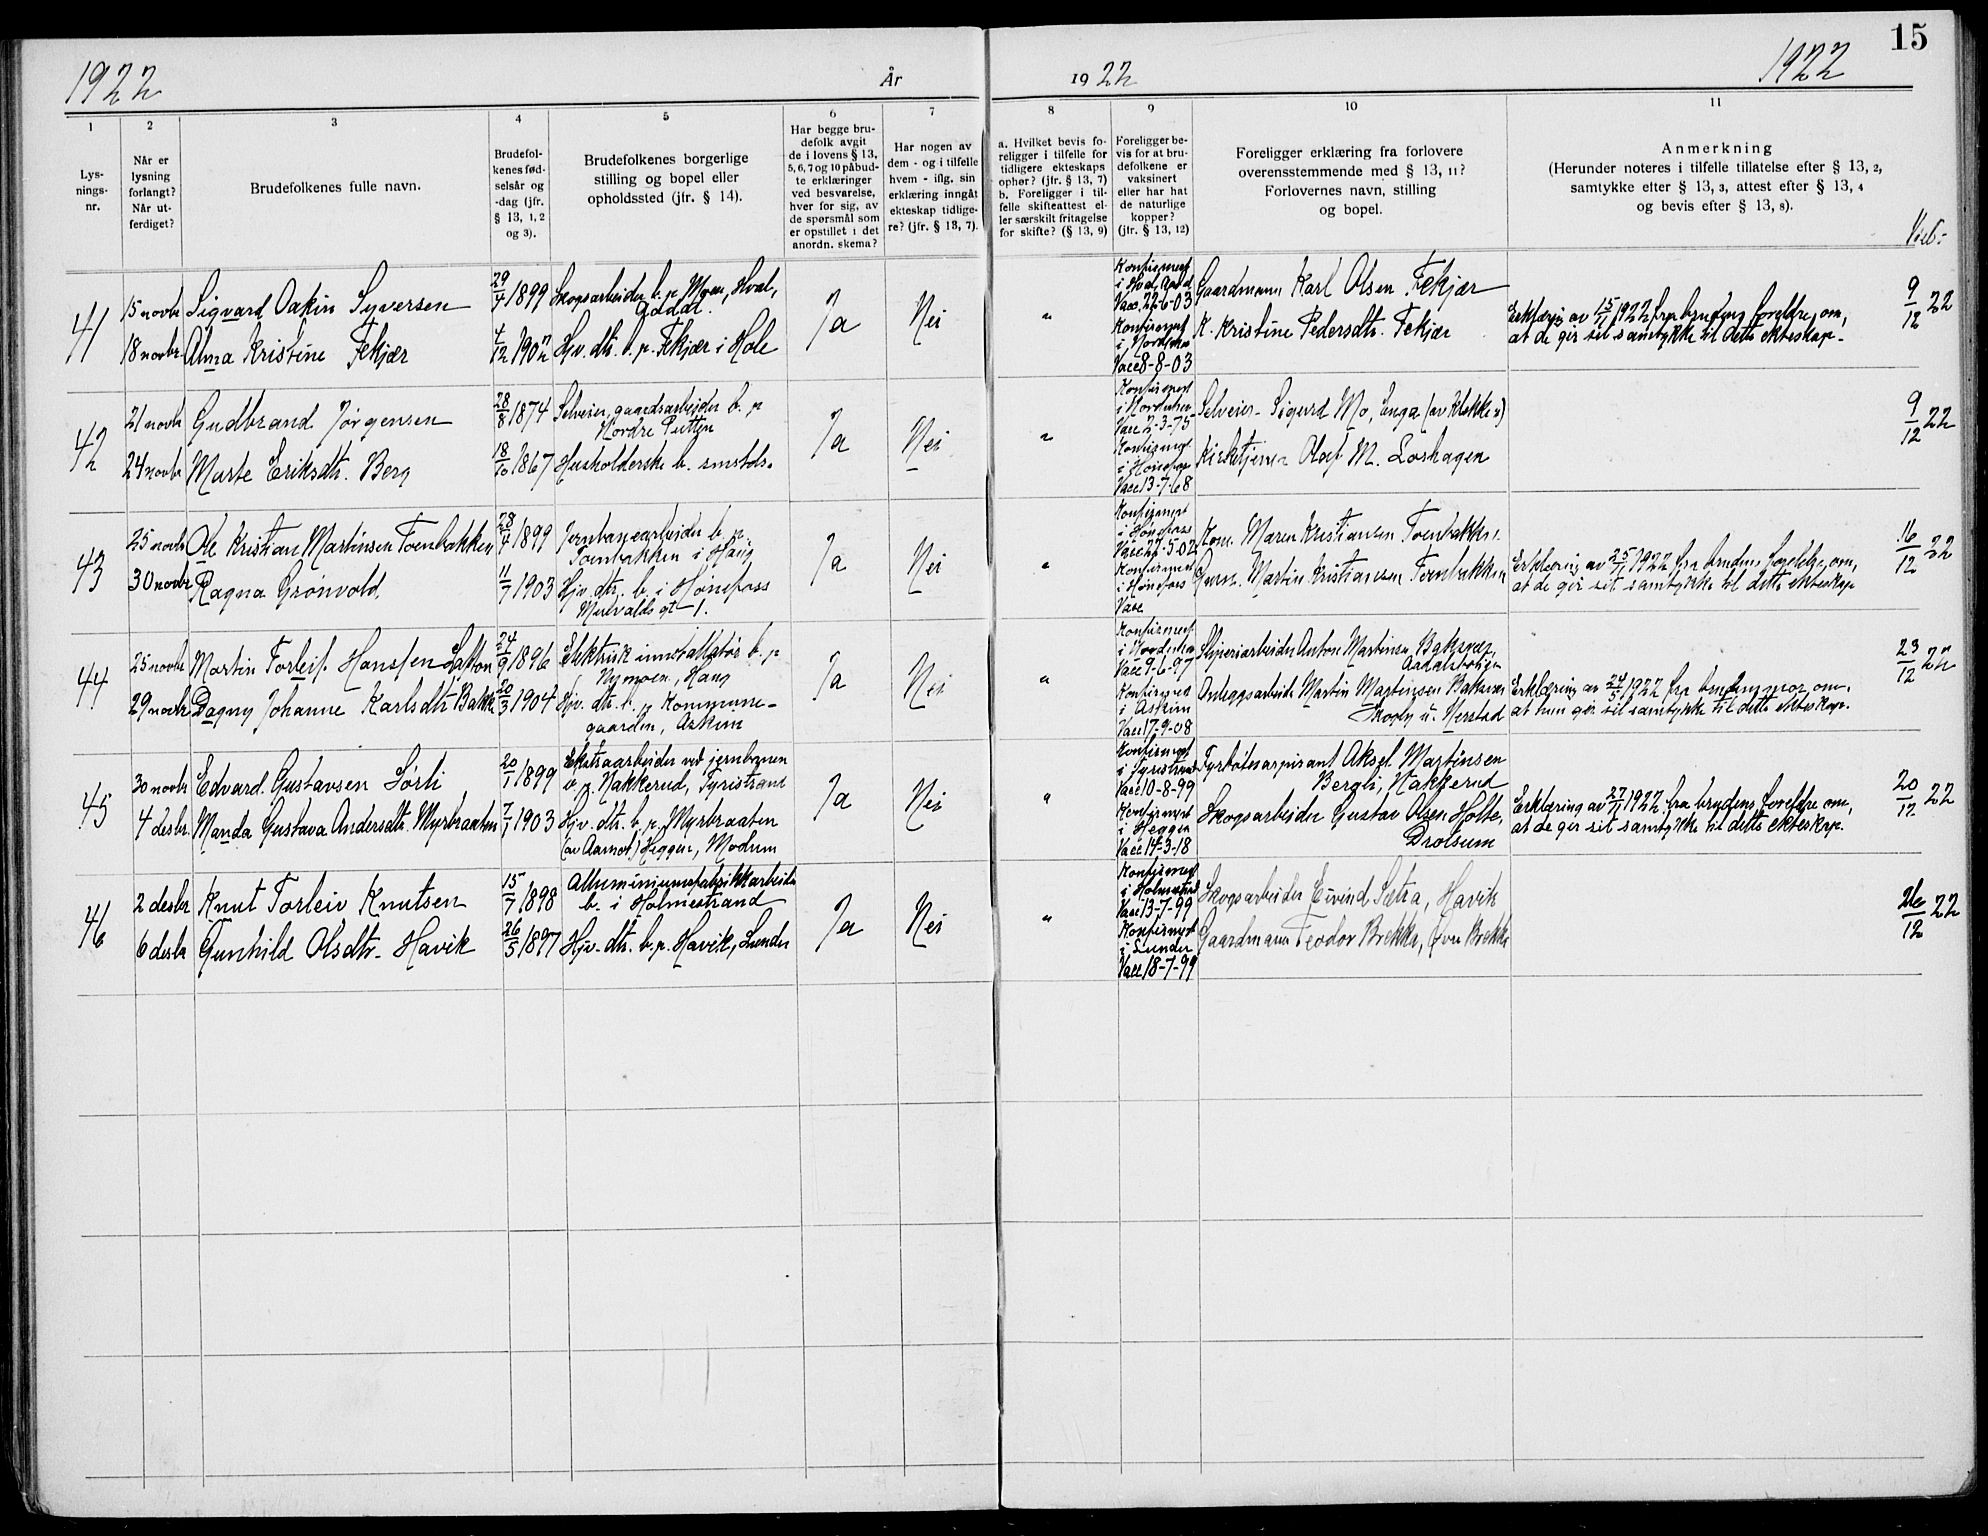 15
1922
År
1922
1922
1
2
3
4
5
6
7
8
9
10
11
Lys-
nings-
nr.
Når er
lysning
forlangt?
Når ut-
ferdiget?
Brudefolkenes fulle navn.
Brudefol-
kenes fød-
selsår og
-dag (jfr.
§ 13, 1, 2
og 3).
Brudefolkenes borgerlige
stilling og bopel eller
opholdssted (jfr. § 14).
Har begge bru-
defolk avgit
de i lovens § 13,
5, 6, 7 og 10 påbud-
te erklæringer
ved besvarelse,
hver for sig, av
de spørsmål som
er opstillet i det
anordn. skema?
Har nogen av
dem - og i tilfelle
hvem - iflg. sin
erklæring inngåt
ekteskap tidlige-
re? (jfr. § 13, 7).
a. Hvilket bevis fo-
religger i tilfelle for
tidligere ekteskaps
ophør? (jfr. § 13, 7)
b. Foreligger i til-
felle skifteattest el-
ler særskilt fritagelse
for skifte? (§ 13, 9)
Foreligger be-
vis for at bru-
defolkene er
vaksinert
eller har hat
de naturlige
kopper?
(jfr. § 13, 12)
Foreligger erklæring fra forlovere
overensstemmende med § 13, 11?
Forlovernes navn, stilling
og bopel.
Anmerkning
(Herunder noteres i tilfelle tillatelse efter § 13, 2,
samtykke efter § 13, 3, attest efter § 13, 4
og bevis efter § 13, 8).
Viet:
41
15 novbr
18 novbr
Sigvard Oakin Syversen
Alma Kristine Fekjær
29/4 1899
4/12 1902
Skogsarbeider b. p. Moen, Hval,
Aadal.
Hjv. dtr. b. p. Fekjær i Hole
Ja
Nei
"
Konfirmert
i Hval, Aadal
Vacc. 22-6-03
Konfirmert
i Norderhov
Vacc 8-8-03
Gaardmann Karl Olsen Fekjær
K. Kristine Pedersdtr. Fekjær
Erklæring av 15/11 1922 fra brudens foreldre, om,
at de gir sit samtykke til dette ekteskap.
9/12 22
42
21 novbr
24 novbr
Gudbrand Jørgensen
Marte Eriksdtr. Berg
28/8 1874
18/10 1867
Selveier, gaardsarbeider b. p
Nordre Putten
Husholderske b. smstds.
Ja
Nei
"
Konfirmert
i Norderhov
Vacc 2-3-75
Konfirmert
i Hønefoss
Vacc 13-7-68
Selveier Sigurd Mo, Enga (av Klekken)
Kirketjener Olaf M. Løshagen
9/12 22
43
25 novbr
30 novbr
Ole Kristian Martinsen Toenbakken
Ragna Grønvold.
28/4 1899
11/7 1903
Jernbanearbeider b. p.
Toenbakken i Haug
Hjv. dtr. b. i Hønefoss
gt 1.
Ja
Nei
"
Konfirmert
i Hønefoss
Vacc 27-5-02
Konfirmert
i Hønefoss
Vacc
Kone Maren Kristiansen Toenbakken
Martin Kristiansen Toenbakken
Erklæring av 25/11 1922 fra brudens foreldre, om,
at de gir sit samtykke til dette ekteskap
16/12 22
44
25 novbr
29 novbr
Martin Torleif Hansen
Dagny Johanne Karlsdtr Bakke
24/9 1896
20/3 1904
Elektrisk installatør b. p
Nymoen, Haug
Hjv. dtr. b. p Kommune-
gaarden, Askim
Ja
Nei
"
Konfirmert
i Norderhov
Vacc 9-6-97
Konfirmert
i Askim
Vacc 17-9-08
Sliperiarbeider Anton Martinsen Baksvær,
Anleggsarbeider Martin Martinsen Baksvær
Skogly u. Nerstad
Erklæring av 24/5 1922 fra brudens mor, om,
at hun gir sit samtykke til dette ekteskap.
23/12 22
45
30 novbr
4 desbr.
Edvard Gustavsen Sørli
Manda Gustava Andersdtr. Myrbraaten
20/1 1899
7/1 1903
Ekstraarbeider ved jernbanen
b. p. Nakkerud, Tyristrand
Hjv. dtr. b. p. Myrbraaten
(av Aamot) Heggen, Modum
Ja
Nei
"
Konfirmert
i Tyristrand
Vacc 10-8-99
Konfirmert
i Heggen
Vacc 14-3-18
Fyrbøteraspirant Aksel Martinsen
Bergli, Nakkerud
Skogsarbeider Gustav Olsen Holte,
Drolsum
Erklæring av 27/11 1922 fra brudens foreldre om,
at de gir sit samtykke til dette ekteskap.
20/12 22
46
2 desbr
6 desbr
Knut Torleiv Knutsen
Gunhild Olsdtr. Havik
15/7 1898
26/5 1897
Alluminiumsfabrikkarbeider
b. i Holmestrand
Hjv. dtr. b. p. Havik, Lunder
Ja
Nei
"
Konfirmert
i Holmestrand
Vacc 13-7-99
Konfirmert
i Lunder
Vacc 18-7-99
Skogsarbeider Eivind Sætra, Havik
Gaardmann Teodor Brekke, Øvre Brekke
26/12 22